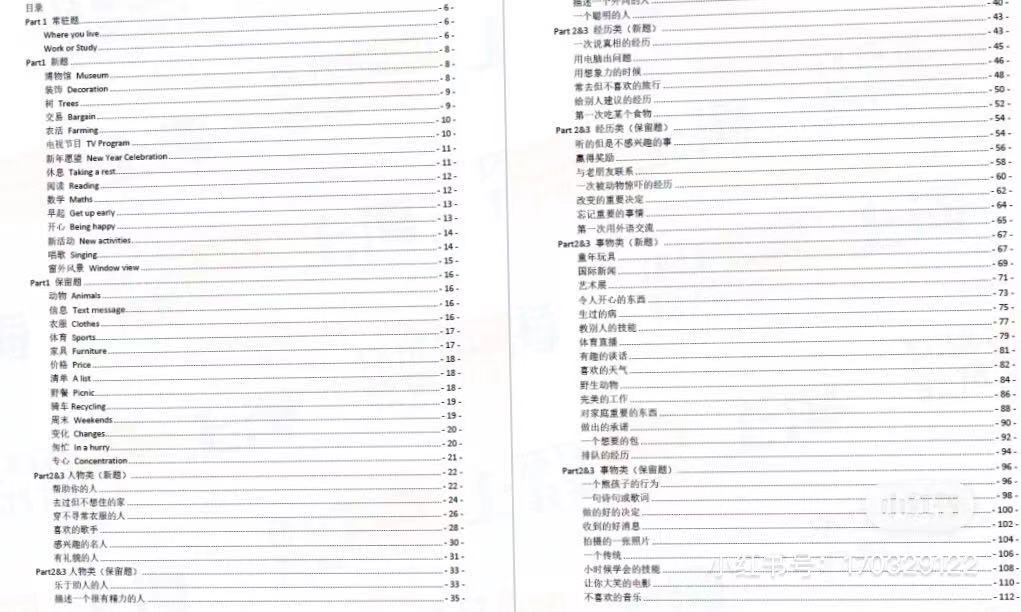 目录
Part 1 常驻题 - 6 -
Where you live - 6 -
Work or Study - 8 -
Part1 新题 - 8 -
博物馆 Museum - 8 -
装饰 Decoration - 9 -
树 Trees - 9 -
交易 Bargain - 10 -
农活 Farming - 10 -
电视节目 TV Program - 11 -
新年愿望 New Year Celebration - 11 -
休息 Taking a rest - 12 -
阅读 Reading - 12 -
数学 Maths - 13 -
早起 Get up early - 13 -
开心 Being happy - 14 -
新活动 New activities - 14 -
唱歌 Singing - 15 -
窗外风景 Window view - 16 -
Part1 保留题 - 16 -
动物 Animals - 16 -
信息 Text message - 16 -
衣服 Clothes - 17 -
体育 Sports - 17 -
家具 Furniture - 18 -
价格 Price - 18 -
清单 A list - 18 -
野餐 Picnic - 19 -
骑车 Recycling - 19 -
周末 Weekends - 20 -
变化 Changes - 20 -
匆忙 In a hurry - 21 -
专心 Concentration - 22 -
Part2&3 人物类（新题） - 22 -
帮助你的人 - 24 -
去过但不想住的家 - 26 -
穿不寻常衣服的人 - 28 -
喜欢的歌手 - 30 -
感兴趣的名人 - 31 -
有礼貌的人 - 33 -
Part2&3 人物类（保留题） - 33 -
乐于助人的人 - 35 -
描述一个很有精力的人
描述一个外向的人 - 40 -
一个聪明的人 - 43 -
Part 2&3 经历类（新题） - 43 -
一次说真相的经历 - 45 -
用电脑出问题 - 46 -
用想象力的时候 - 48 -
常去但不喜欢的旅行 - 50 -
给别人建议的经历 - 52 -
第一次吃某个食物 - 54 -
Part 2&3 经历类（保留题） - 54 -
听的但是不感兴趣的事 - 56 -
赢得奖励 - 58 -
与老朋友联系 - 60 -
一次被动物惊吓的经历 - 62 -
改变的重要决定 - 64 -
忘记重要的事情 - 65 -
第一次用外语交流 - 67 -
Part2&3 事物类（新题） - 67 -
童年玩具 - 69 -
国际新闻 - 71 -
艺术展 - 73 -
令人开心的东西 - 75 -
生过的病 - 77 -
教别人的技能 - 79 -
体育直播 - 81 -
有趣的谈话 - 82 -
喜欢的天气 - 84 -
野生动物 - 86 -
完美的工作 - 88 -
对家庭重要的东西 - 90 -
做出的承诺 - 92 -
一个想要的包 - 94 -
排队的经历 - 96 -
Part2&3 事物类（保留题） - 96 -
一个熊孩子的行为 - 98 -
一句诗句或歌词 - 100 -
做的好的决定 - 102 -
收到的好消息 - 104 -
拍摄的一张照片 - 106 -
一个传统 - 108 -
小时候学会的技能 - 110 -
让你大笑的电影 - 112 -
不喜欢的音乐
小红书
小红书号：170329122